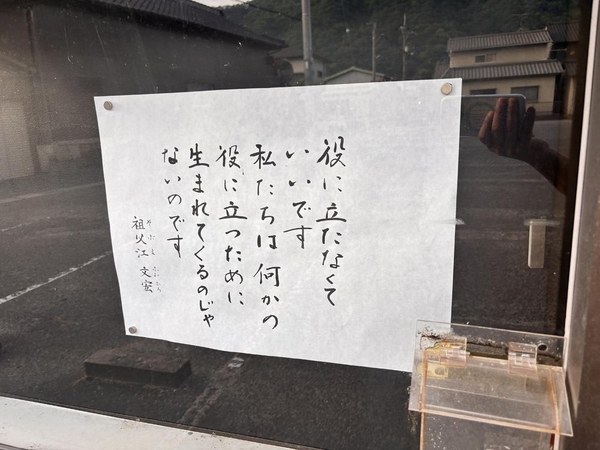 役に立たなくて
いいです
私たちは何かの
役に立つために
生まれてくるのじゃ
ないのです
祖父江 文宏